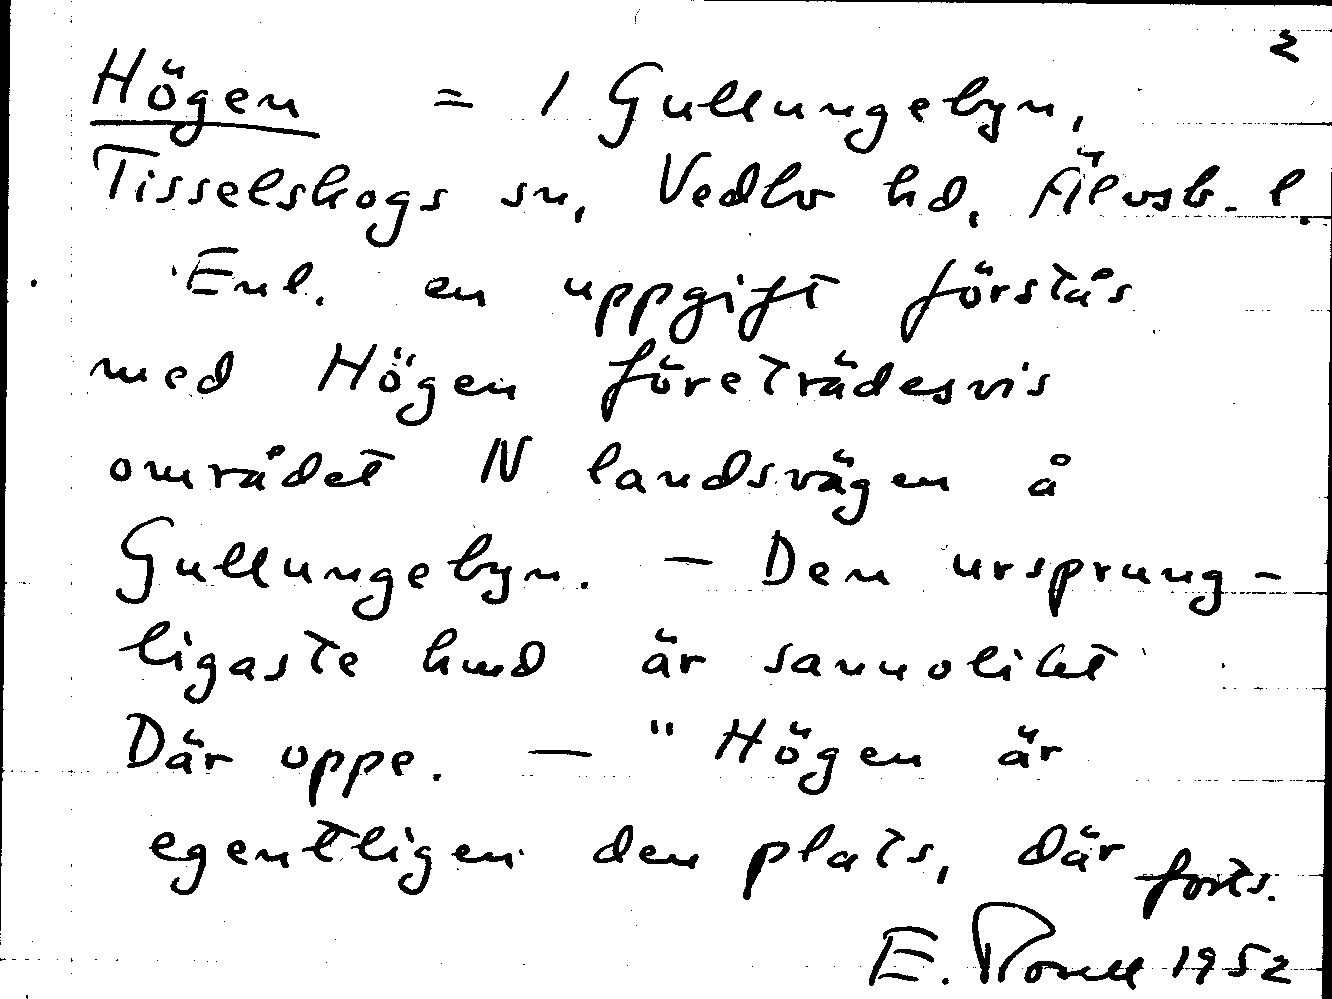 2
Högen = 1 Gullungebyn,
Tisselskogs sn, Vedbo hd, Älvsb. l.
Enl. en uppgift förstås
med Högen företrädesvis
området N landsvägen å
Gullungebyn. — Den ursprung-
ligaste hmd är sannolikt
Där oppe. — "Högen är
egentligen den plats, där forts.
E. 1952